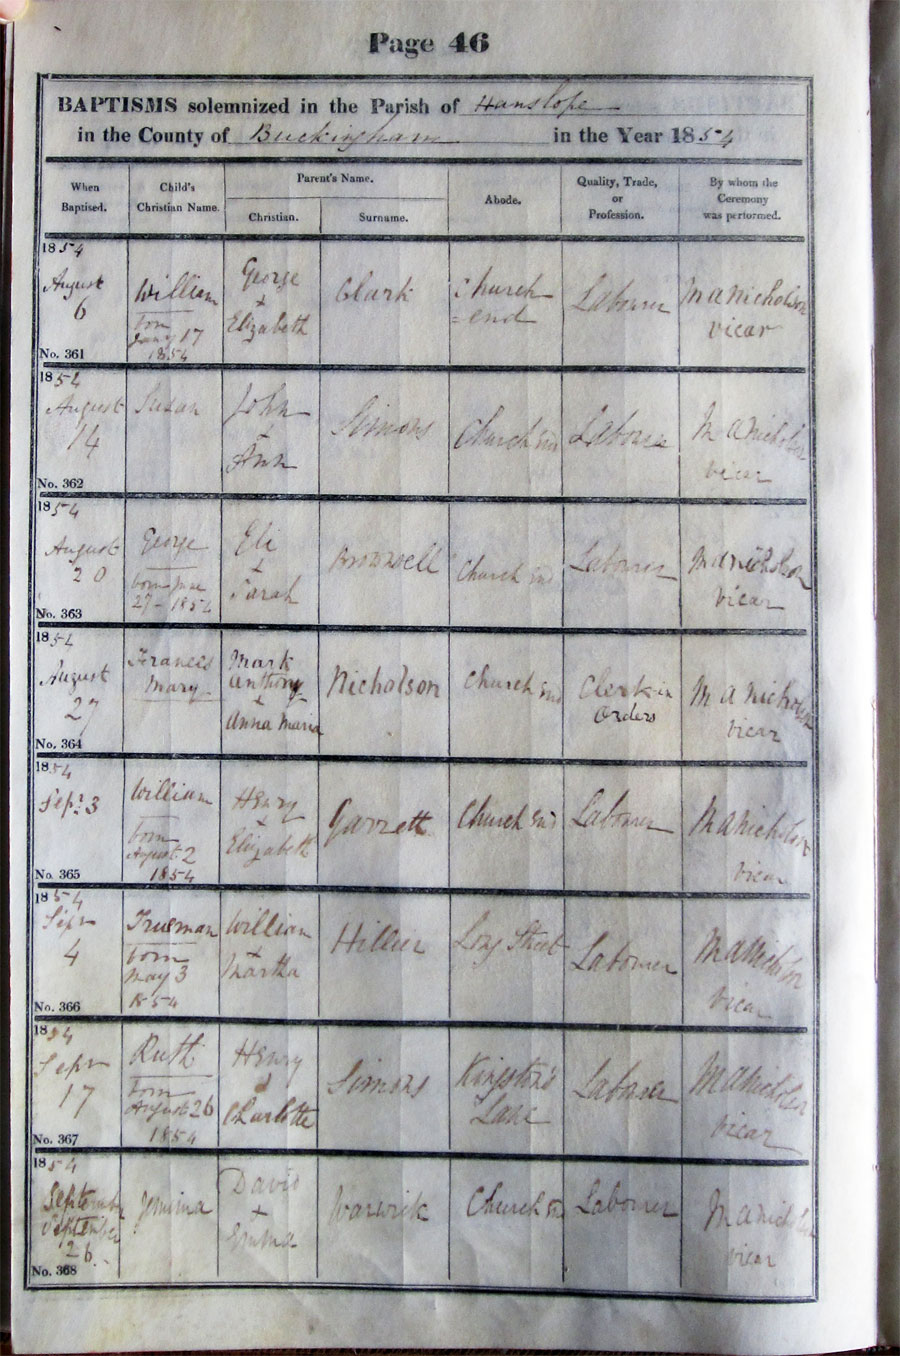 Page 46
BAPTISMS solemnized in the Parish of Hanslope
in the County of Buckingham in the Year 1854
When Baptised.
Child's Christian Name.
Parent's Name.
Christian.
Surname.
Abode.
Quality, Trade, or Profession.
By whom the Ceremony was performed.
1854
August 6
No. 361
William
born
Jany 17
1854
George
+
Elizabeth
Clark
Church
=end
Labourer
M A Nicholson
vicar
1854
August
14
No. 362
Susan
John
+
Ann
Simons
Church End
Labourer
M A Nicholson
vicar
1854
August
20
No. 363
George
born June
27 - 1854
Eli
+
Sarah
Brownsell
Church End
Labourer
M A Nicholson
vicar
1854
August
27
No. 364
Francis
Mary
Mark
Anthony
+
Anna Maria
Nicholson
Church End
Clerk in
Orders
M A Nicholson
vicar
1854
Sept. 3
No. 365
William
born
August 2
1854
Henry
+
Elizabeth
Garrett
Church End
Labourer
M A Nicholson
vicar
1854
Sepr
4
No. 366
Trueman
born
May 3
1854
William
+
Martha
Hillier
Long Street
Labourer
M A Nicholson
vicar
1854
Sepr
17
No. 367
Ruth
born
August 26
1854
Henry
&
Charlotte
Simons
Kingston's
Lane
Labourer
M A Nicholson
vicar
1854
September
September
26.
No. 368
Jemima
David
+
Emma
Warwick
Church End
Labourer
M A Nicholson
vicar